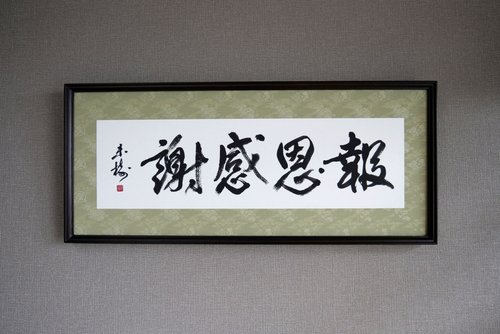 報恩感謝